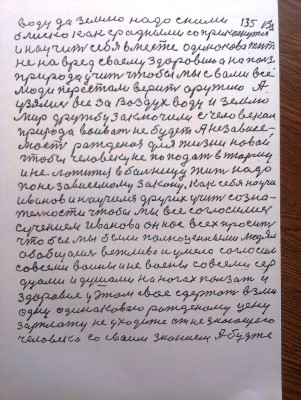 воду да землю надо сними 135
близко как срадними соприкощится
и научит себя вместе одинаково жит
не на вред своему здоровию а на полз
природа учит чтобы мы с вами все
люди перестали верит оружию А
узялис все за воздух воду и землю
мир дружбу заключили с человекам
природа воиват не будет А независе-
мост ражденоя для жизни новой
чтобы человеку не попадат в тюрму
и не ложится в балницу жит надо
по не зависемому закону, как себя научил
Иванов и научил других учит созна-
телности чтобы мы все согласилис
сучением Иванова он нос всех просит
что бы мы были полноценными людям
абобщалис вежливо и умело согласно
совсеми воины и не воены совсеми сер
дцами и душами на ногах ползат и
здоровие у этом свое сдержат взяли
одну одинаковаю рожденому цену
зарплату не уходите от не знающего
человека со своим знанием А будте